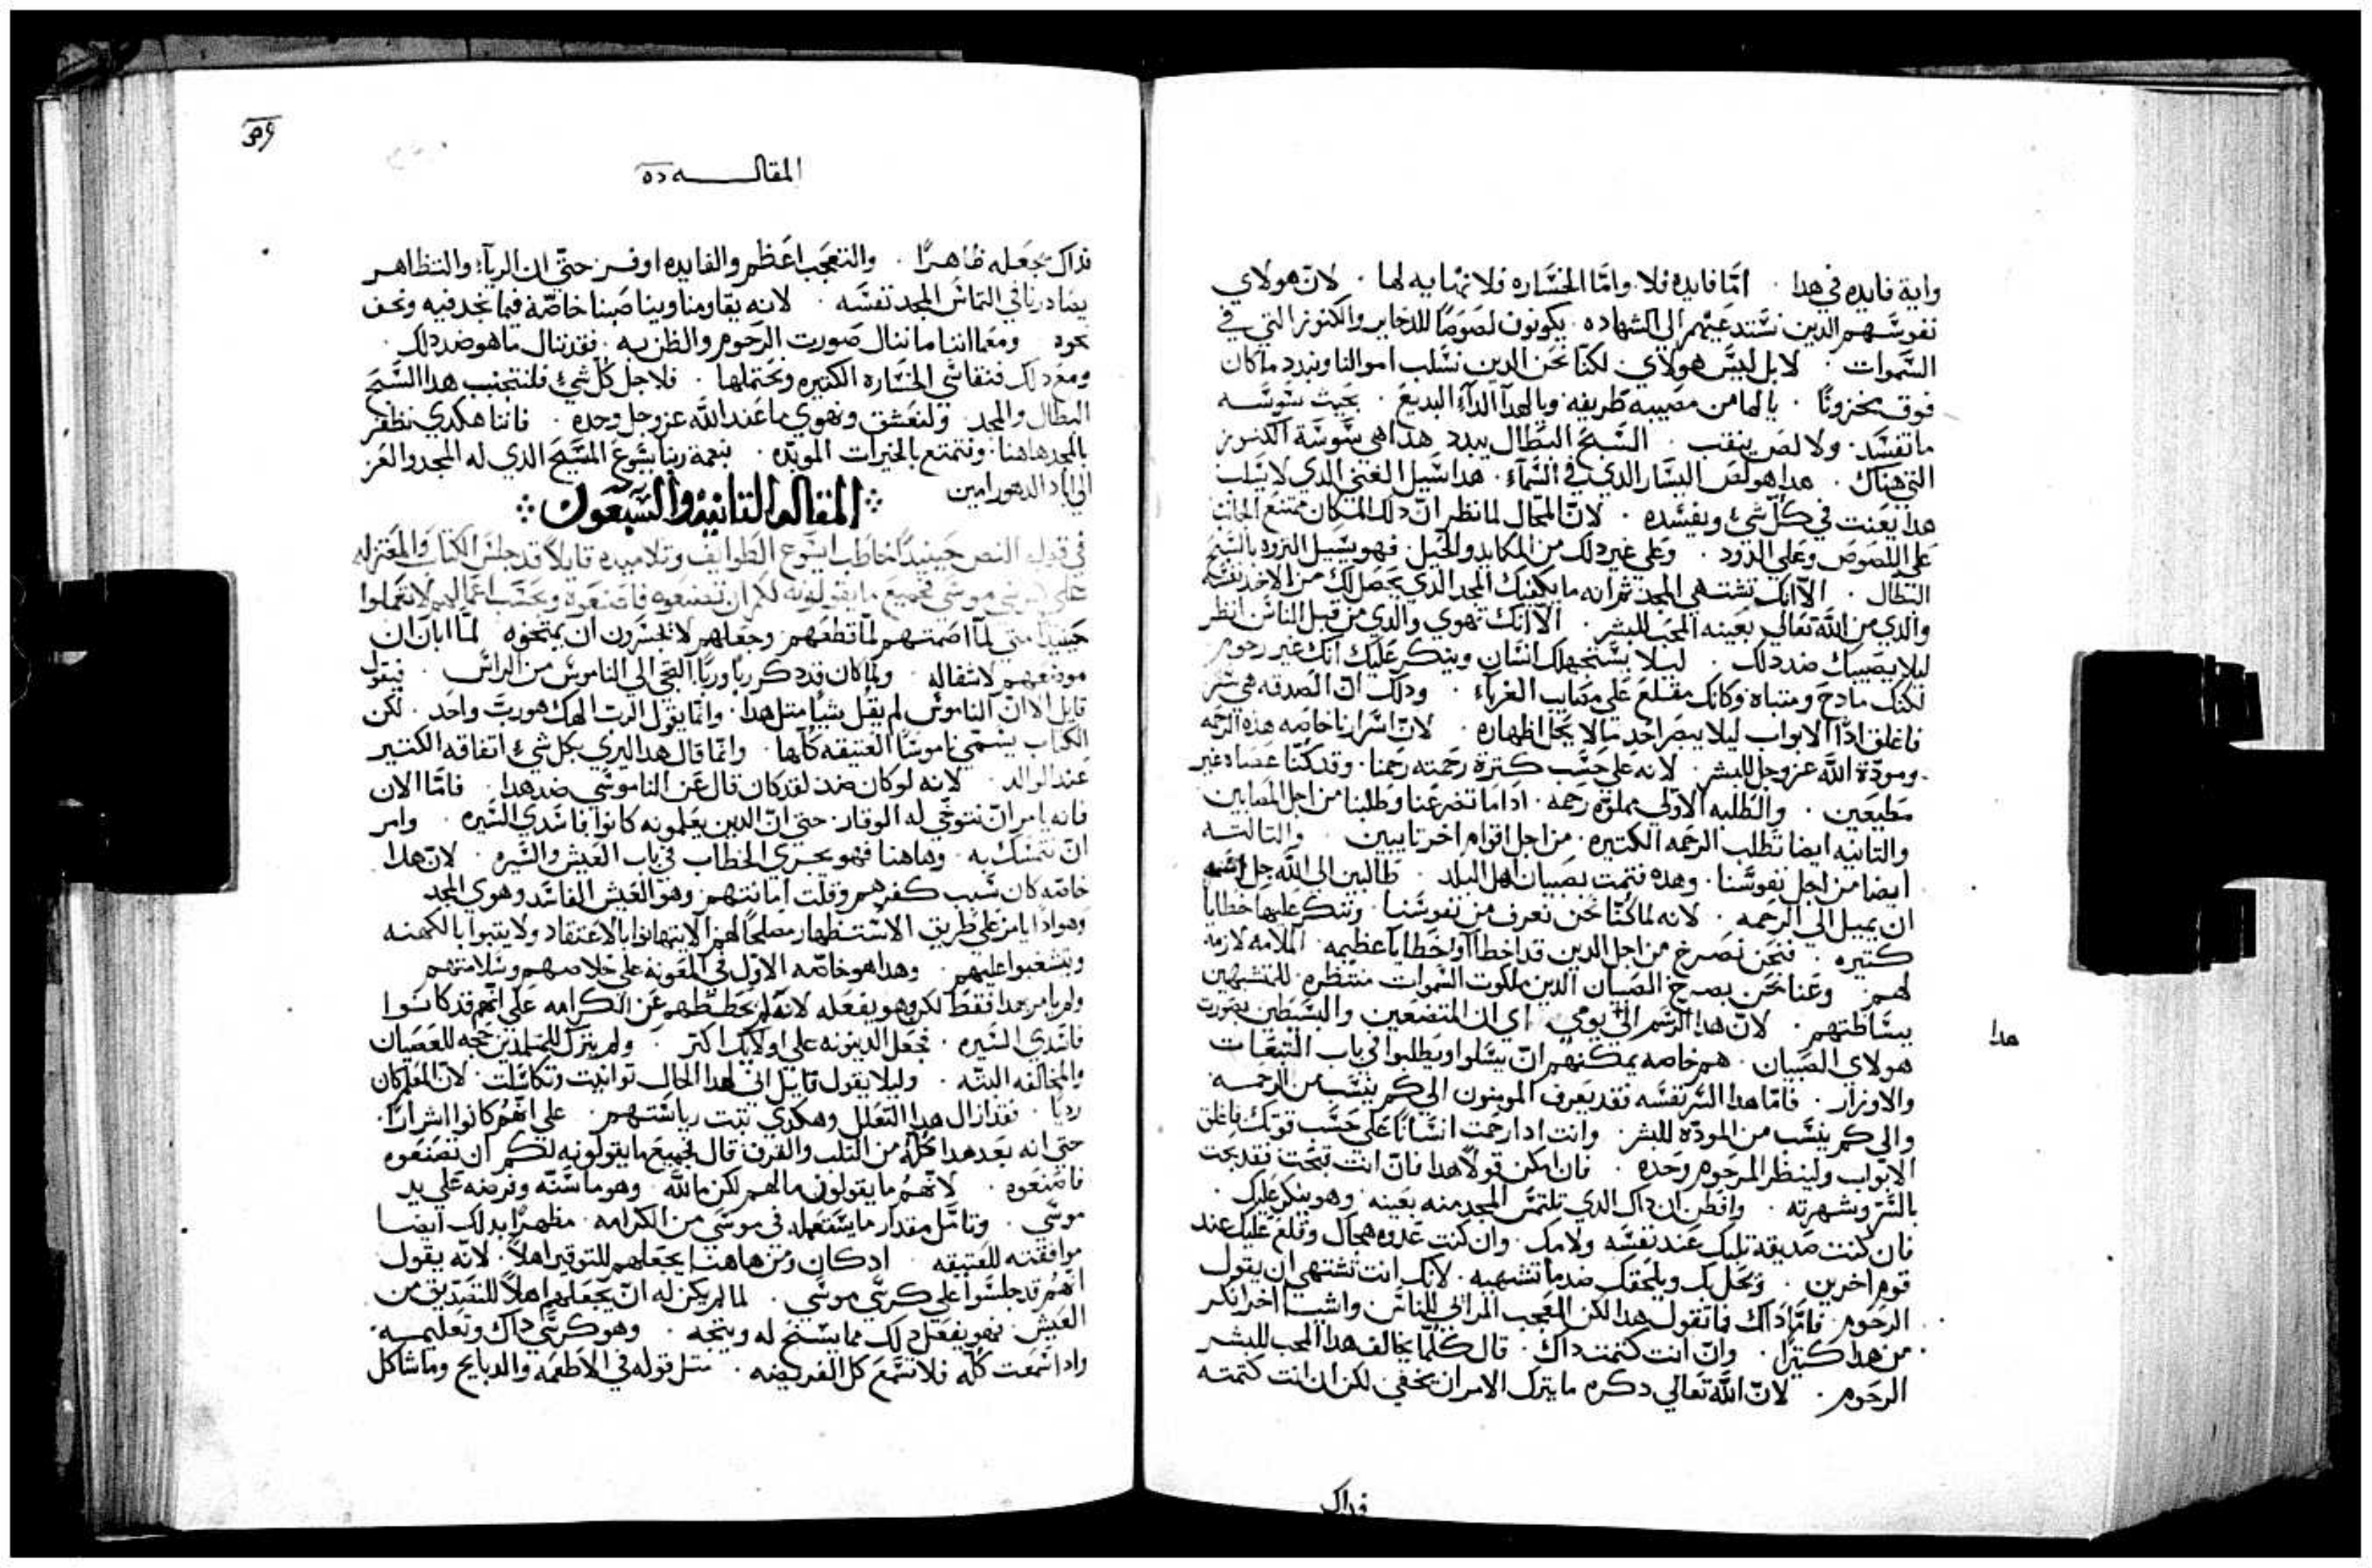 واية فايده في هدا . امّا فايده فلا. وامّا الخسّاره فلا نهايه لها . لانّ هولاي
نفوسّهم الدين نسّتدعيهم الي الشهاده . يكونون لصوصًا للدخاير والكنوز التي في
السّموات . لا بل ليسّ هولاي . لكنّا نحن الدين نسّلب اموالنا ونبدد ما كان
فوق مخزونًا . يا لها من مصيبه طريفه ويا لهدا الدآء البديع . بحيث سّوسّه
ما تفسّد. ولا لص ينقب . السّبح البطال يبدد هدا هي سّوسّة الكنوز
التي هناك . هدا هو لص اليسّار الدي في السّمآء . هدا سّبيل الغني الدي لا يسّلب
هدا يعنت في كلّ شيء ويفسّده . لانّ المحال لما نظر انّ دلك المكان ممتنع الجانب
علي اللصوص وعلي الدود . وعلي غير دلك من المكايد والحيل . فهو يسّبيل الثروه بالسّبح
البطّال . الّا انك تشتهي المجد ثم انه ما يكفيك المجد الدي يحصل لك من الاخد نفسّه
والدي من اللّه تعالي بعينه المحب للبشر . الّا انك تهوي والدي من قبل الناسّ انظر
ليلا يصيبك ضد دلك . ليلا يسّتجهلك انسّان وينكر عليك انك غير رحوم
لكنك مادح ومتباه وكانك مقلع علي مصايب الغربآء . ودلك انّ الصدقه هي سّر
فاغلق ادًا الابواب ليلا يبصر احد ما لا يحل اظهاره . لانّ اسّرارنا خاصه هده الرحمه
ومودّة اللّه عز وجل للبشر . لانه علي حسّب كترة رحمته رحمنا . وقد كنّا عصاه غير
مطيعين . والطلبه الاولي مملوّه رحمه . ادا ما تضرعنا وطلبنا من اجل المصابين
والتانيه ايضا تطلب الرحمه الكتيره . من اجل اقوام اخر تايبين . والتالته
ايضا من اجل نفوسّنا . وهده فتمت بصبيان اهل البلد . طالبين الي اللّه جل اسّمه
ان يميل الي الرحمه . لانه لما كنّا نحن نعرف من نفوسّنا . وننكر عليها خطايا
كتيره . فنحن نصرخ من اجل الدين قد اخطاوا خطايا عظيمه الملامه لازمه
لهم . وعنا نحن يصرخ الصبيان الدين ملكوت السّموات منتظره للمتشبهين
ببسّاطتهم . لانّ هدا الرسّم الي يومي اي ان المتضعين والبسّيطين بصورت
هدا
هولاي الصبيان . هم خاصه يمكنهم انّ يسّلوا ويطلبوا في باب التبعات
والاوزار . فامّا هدا السّر نفسّه فقد يعرف المومنون الي كم ينسّب من الرحمه
والي كم ينسّب من المودّه للبشر . وانت ادا رحمت انسّانًا علي حسّب قوتك فاغلق
الابواب ولينظر المرحوم وحده . فان امكن قولًا هدا فانّ انت فتحت فقد بحت
بالسّر وشهرته . وافطن ان داك الدي تلتمسّ المجد منه بعينه وهو ينكر عليك .
فان كنت صديقه تلبك عند نفسّه ولامك . وان كنت عدوه هجاك وقلع عليك عند
قوم اخرين . ويحل بك ويلحقك ضد ما تشتهيه . لانك انت تشتهي ان يقول
الرحوم . فامّا داك فما تقول هدا لكن المعجب المرآي للناسّ واشيا اخر انكر
من هدا كتيرًا . وانّ انت كتمت داك . قال كلما يخالف هدا المحب للبشر
الرحوم . لانّ اللّه تعالي دكره ما يترك الامر ان يخفي لكن ان انت كتمته
فداك
المقالـــــه
فداك يجعله ظاهرًا . والتعجب اعظم والفايده اوفر حتيّ ان الريآء والتظاهر
يضادنا في التماسّ المجد نفسّه . لانه يقاومنا ويناصبنا خاصّة فيما نجد فيه ونحن
نحوه . ومعما اننا ما ننال صورت الرحوم والظن به . فقد ننال ما هو ضد دلك .
ومع دلك فنقاسّي الخسّاره الكتيره ونحتملها . فلاجل كلّ شيء فلنتجنب هدا السّبح
البطال والمجد . ولنعشق ونهوي ما عند اللّه عز وجل وحده . فاننا هكدي نظفر
بالمجد هاهنا . ونتمتع بالخيرات الموبده . بنعمة ربنا يسّوع المسّيح الدي له المجد والعز
الي اباد الدهور امين
المقاله التانيه والسّبعون
في قول النص حينيدًا خاطب ايسّوع الطوايف وتلاميده قايلًا قد جلسّ الكتاب والمعتزله
علي كرسّي موسّي فجميع ما يقولونه لكم ان تصنعوه فاصنعوه وبحسّب اعمالهم لا تعملوا
حينيدًا متي لمّا اصمتهم لمّا قطعهم وجعلهم لا يجسّرون ان يمتحنوه لمّا ابان ان
موضعهم لا شفا له . ولما كان قد دكر ربًا وربًا التجي الي الناموسّ من الراسّ . فيقول
قايل الا انّ الناموسّ لم يقل شيًا متل هدا . وانّما يقول الرب الهك هو ربّ واحد . لكن
الكتاب يسّمّي ناموسًّا العتيقه كلّها . وانّما قال هدا ليري بكل شيء اتفاقه الكتير
عند الوالد . لانه لو كان ضد لقد كان قال عن الناموسّ ضد هدا . فامّا الان
فانه يامر انّ نتوخي له الوقار . حتي انّ الدين يعلمونه كانوا فاسّدي السّيره . وامر
انّ نتمسّك به . وهاهنا فهو يجري الخطاب في باب العيش والسّيره . لانّ هدا
خاصّه كان سّبب كفرهم وقلت امانتهم وهو العيش الفاسّد وهوي المجد
وتشغبوا عليهم . وهدا هو خاصّه الاول في المعونه علي خلاصهم وسّلامتهم
ولم يامر بهدا فقط لكن وهو يفعله لانه لم يحططهم عن الكرامه علي انّهم قد كانوا
فاسّدي السّيره . فجعل الدينونه علي اولايك اكتر . ولم يترك للتلمدين حجه للعصيان
والمخالفه البتّه . وليلا يقول قايل اني لهدا الحال توانيت وتكاسّلت . لانّ المعلم كان
رديًا . فقد ازال هدا التعلل وهكدي تبت رياسّتهم . علي انّهم كانوا اشرارًا .
حتي انه بعد هدا كلّه من التلب والقرف قال فجميع ما يقولونه لكم ان تصنعوه
فاصنعوه . لانّهم ما يقولون ما لهم لكن ما للّه . وهو ما سّنّه وفرضه علي يد
موسّي . وتامّل مقدار ما يسّتعمله في موسّي من الكرامه . مظهرًا بدلك ايضا
موافقته للعتيقه . ادكان ومن هاهنا يجعلهم للتوقير اهلًا . لانّه يقول
انّهم قد جلسّوا علي كرسّي موسّي . لما لم يكن له انّ يجعلهم اهلًا للتصديق من
العيش . فهو يفعل دلك مما يسّنح له ويتجه . وهو كرسّي داك وتعليمه .
وادا سّمعت كلّه فلا تسّمع كل الفريضه . متل قوله في الاطعمه والدبايح وما شاكل